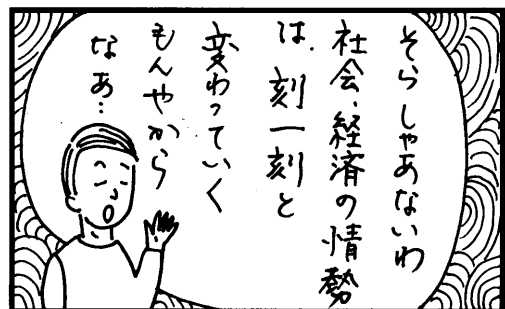 そらしゃあないわ
社会、経済の情勢
は、刻一刻と
変わっていく
もんやから
なあ…